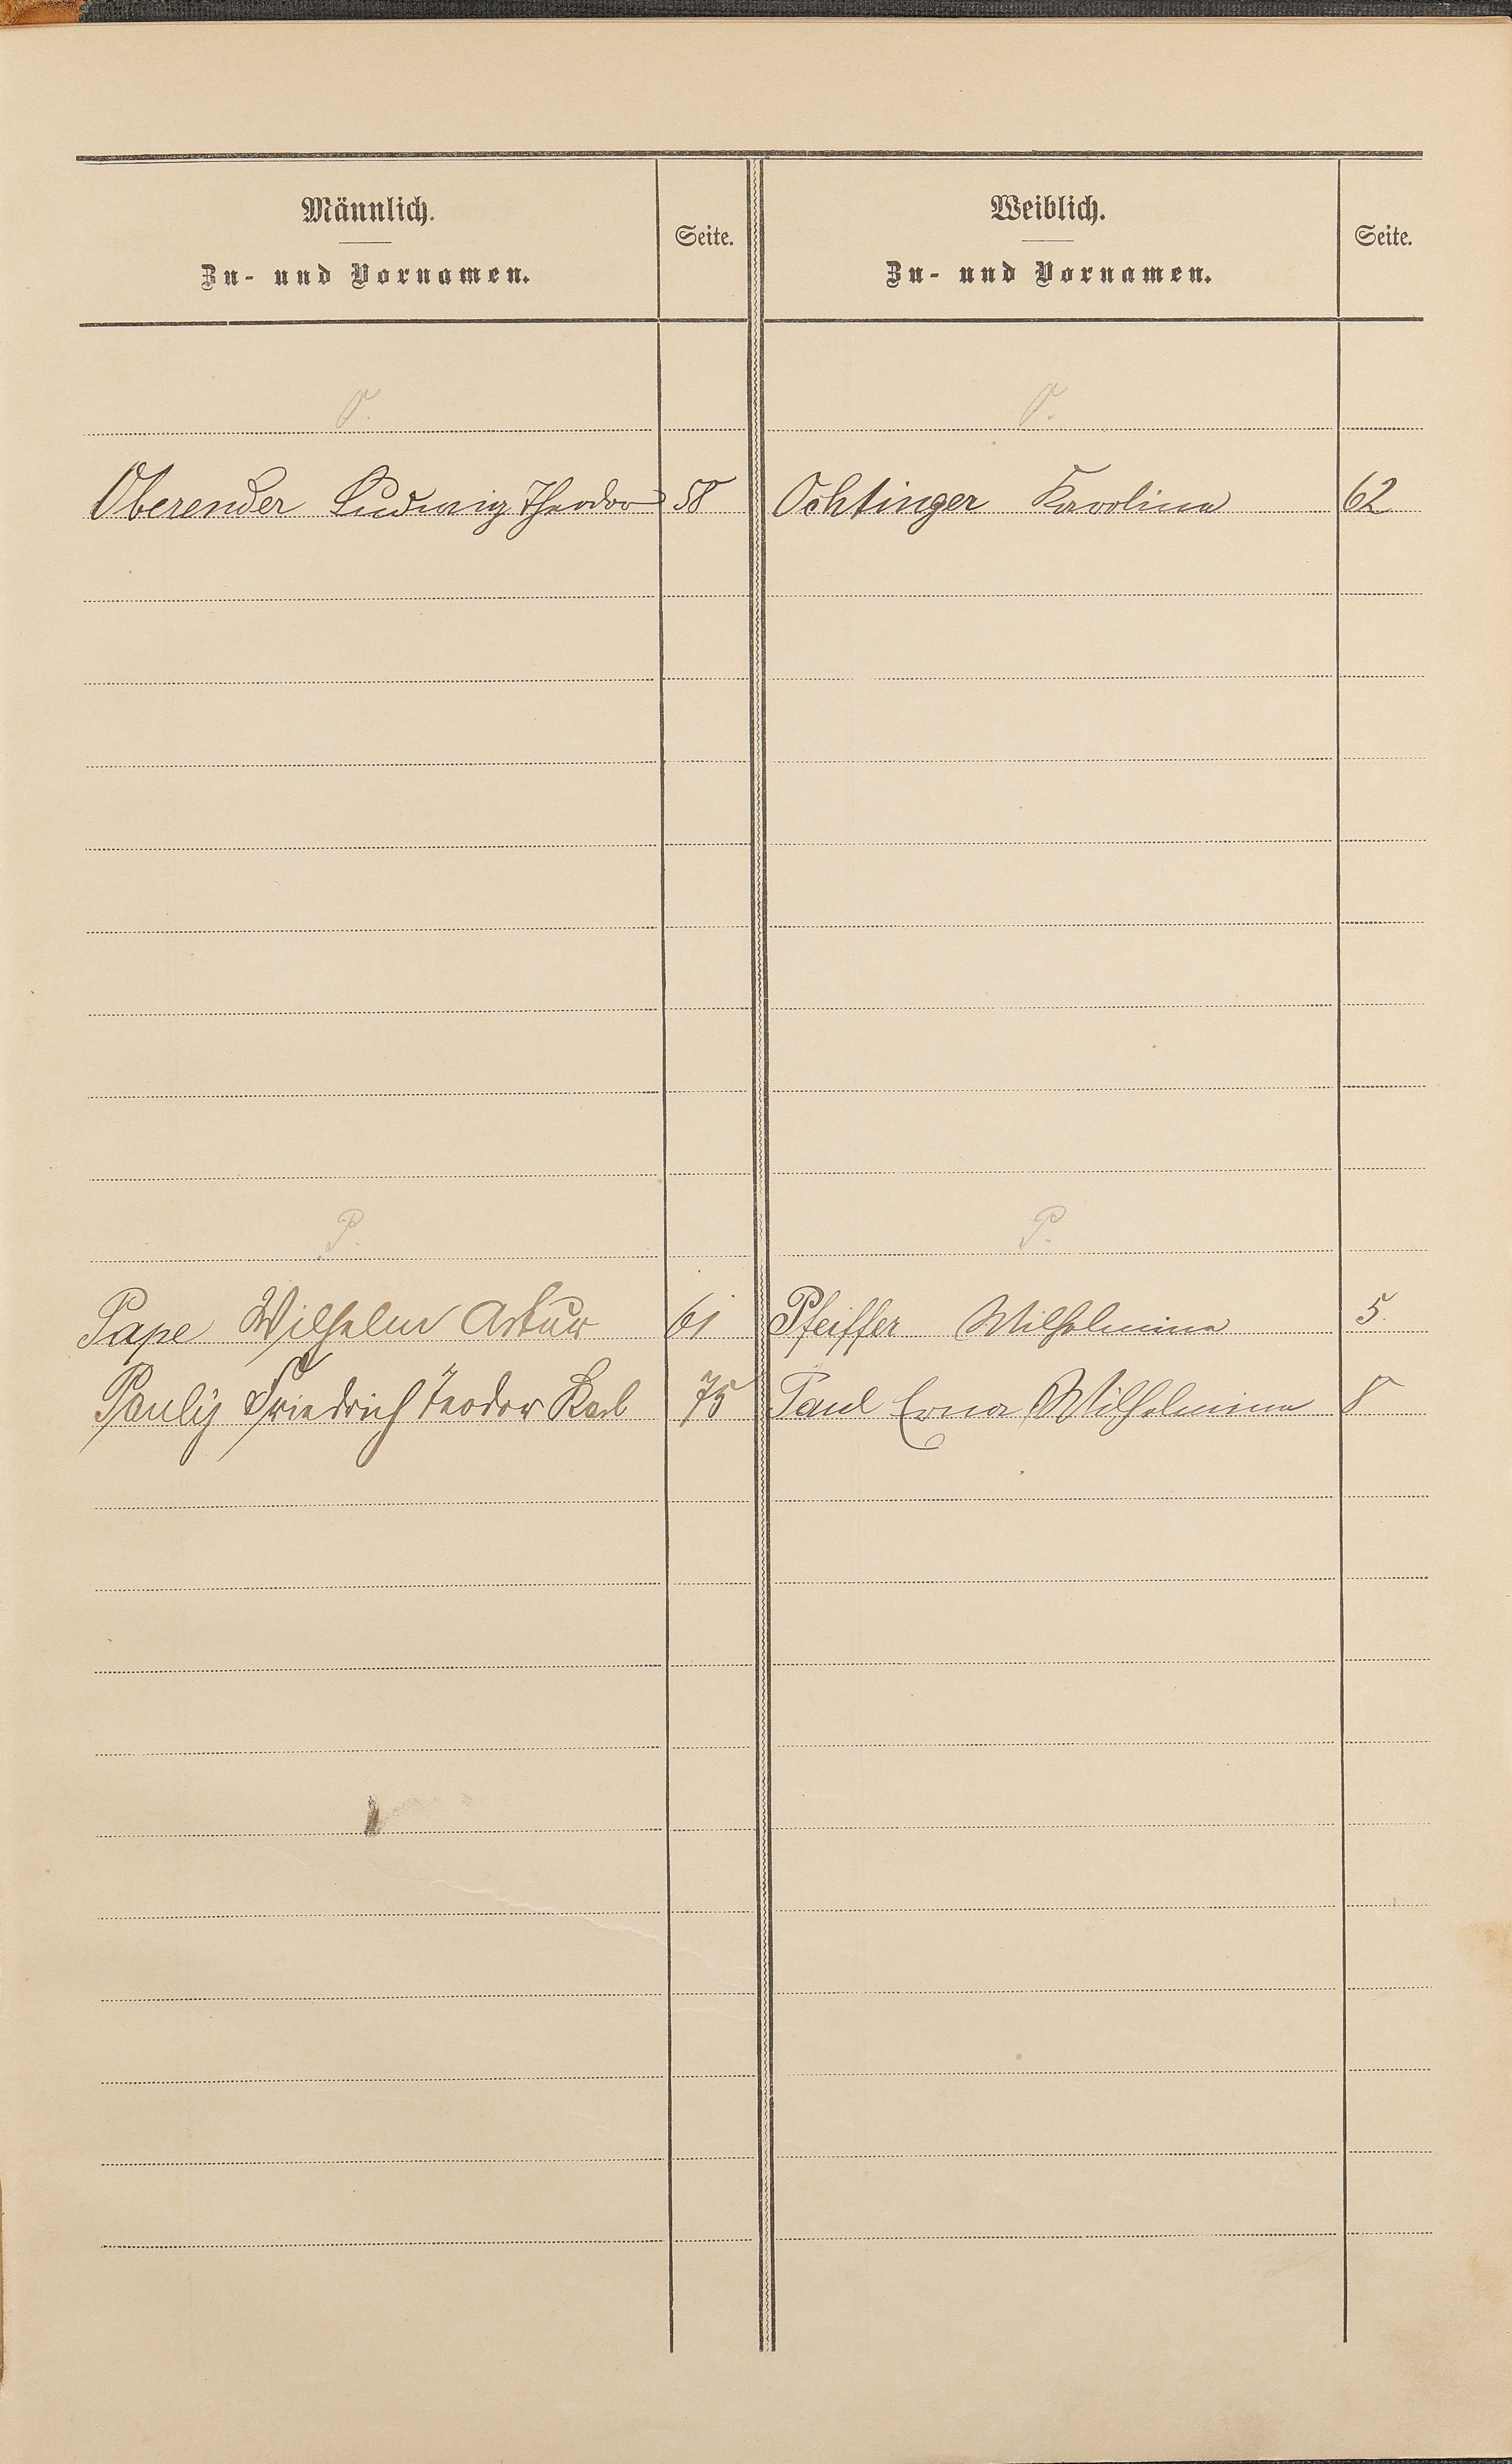 Männlich.
Zu- und Vornamen.
Seite.
Weiblich.
Zu- und Vornamen.
Seite.
O.
O.
Oberender Ludwig Theodor 58
Ochtinger Karolina 62
P.
P.
Pape Wilhelm Artur 61
Pfeiffer Wilhelmina 5.
Pauly Friedrich Teodor Karl 75
Paul Erna Wilhelmina 8